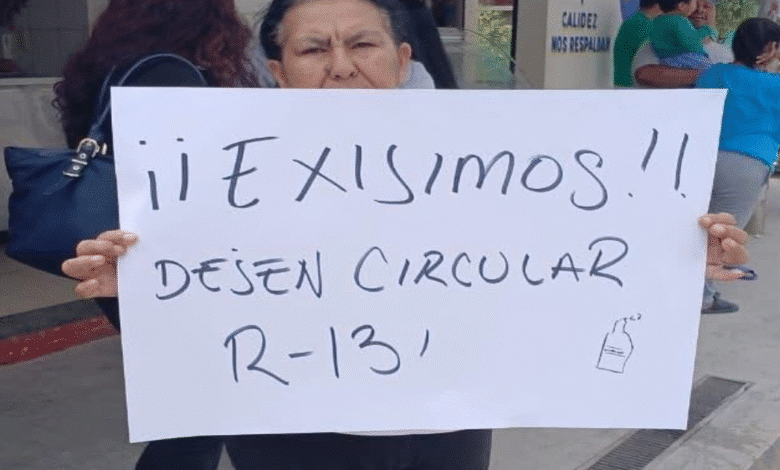 CALIDEZ
NOS RESPALDAN
¡¡EXIJIMOS!!
DEJEN CIRCULAR
R-131